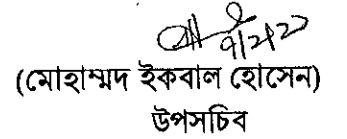 (মোহাম্মদ ইকবাল হোসেন)
উপসচিব